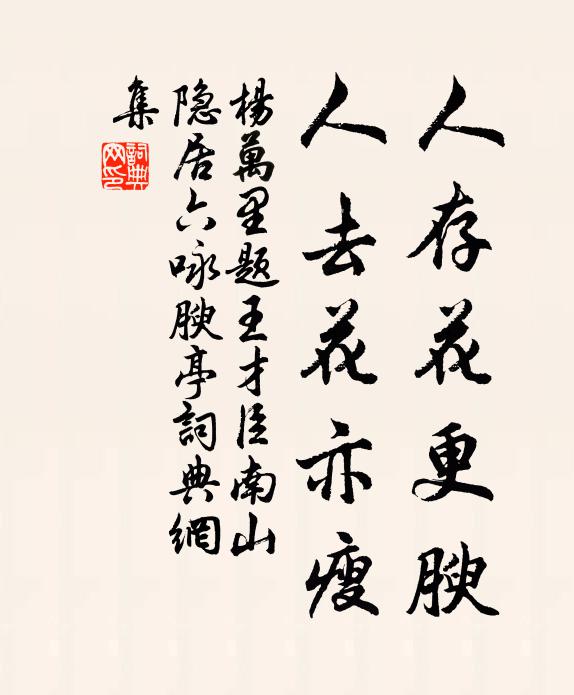 人存花更腴
人去花亦瘦
楊萬里題王才臣南山
隐居六咏腴亭詞典網
集
詞典
网印